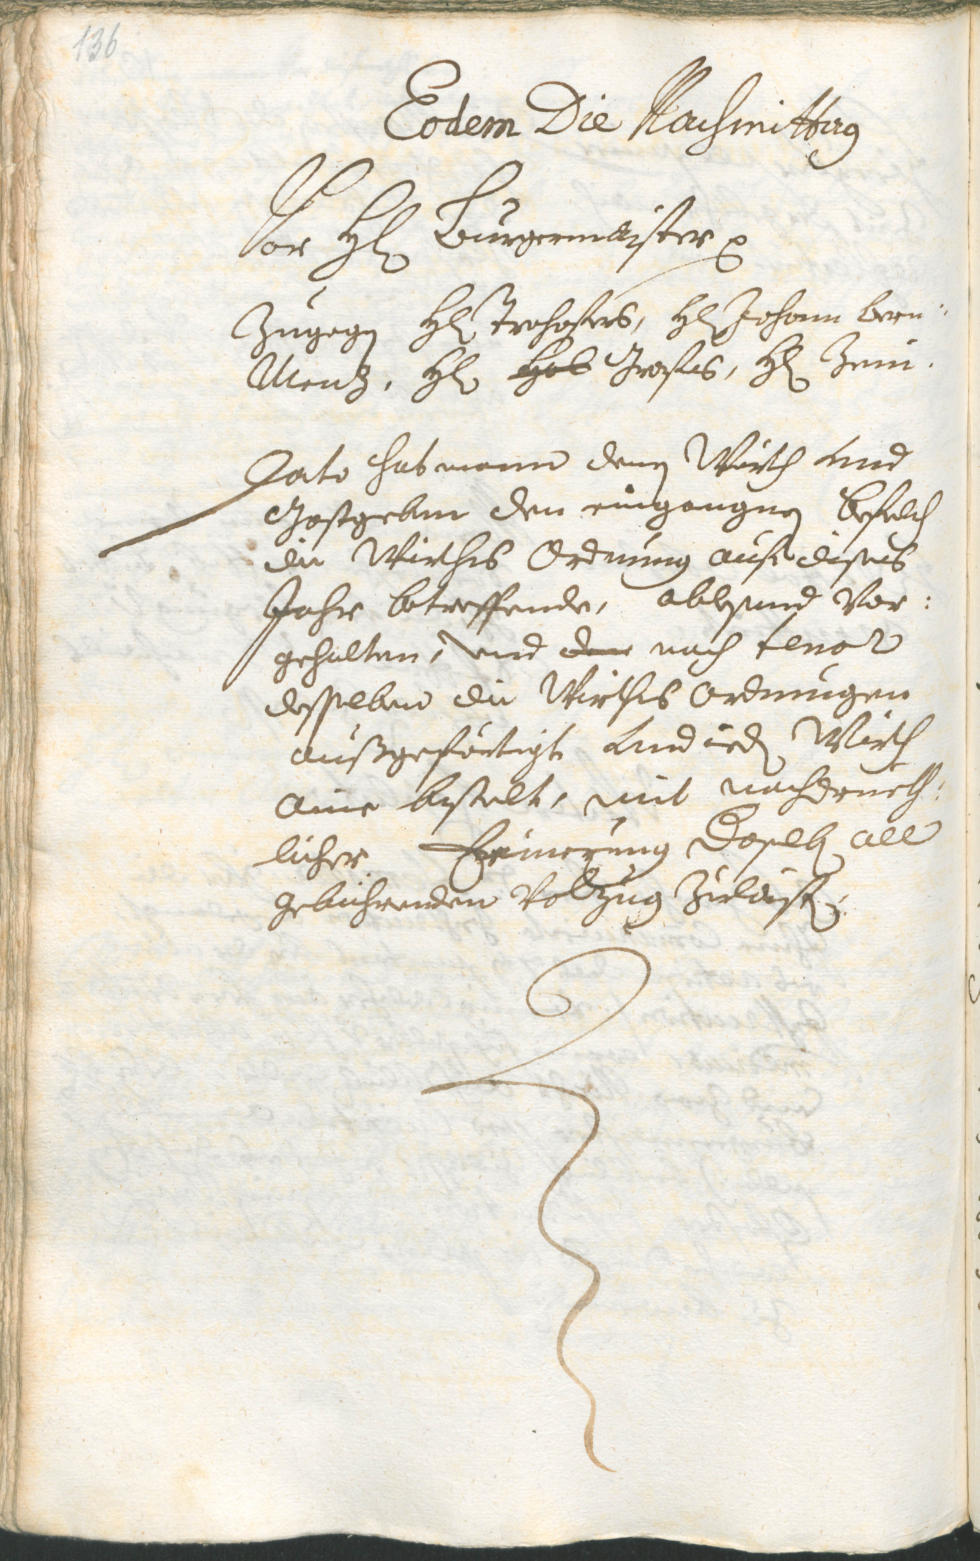 136
Eodem Die Nachmittag
Vor H: Burgermaister
Zugegen H: H: Johann
Mentz, H: H:
Dato hat mann denen Würth und
Gastgeben den eingangnen befelch
die Wirths Ordnung auf dises
Jahr betreffende, ablesend vor:
gehalten, und nach tenor
desselben die Wirths Ordnungen
außgefertigt und ieden Würth
aine bestelt, mit nachdruckh:
licher Erinerung doselben all
gebührenden Volzug